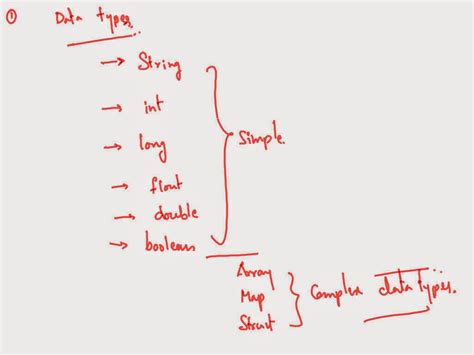 ① Data types.
→ String
→ int
→ long
→ float
→ double
→ boolean
Simple.
Array
Map
Struct
Complex data types.